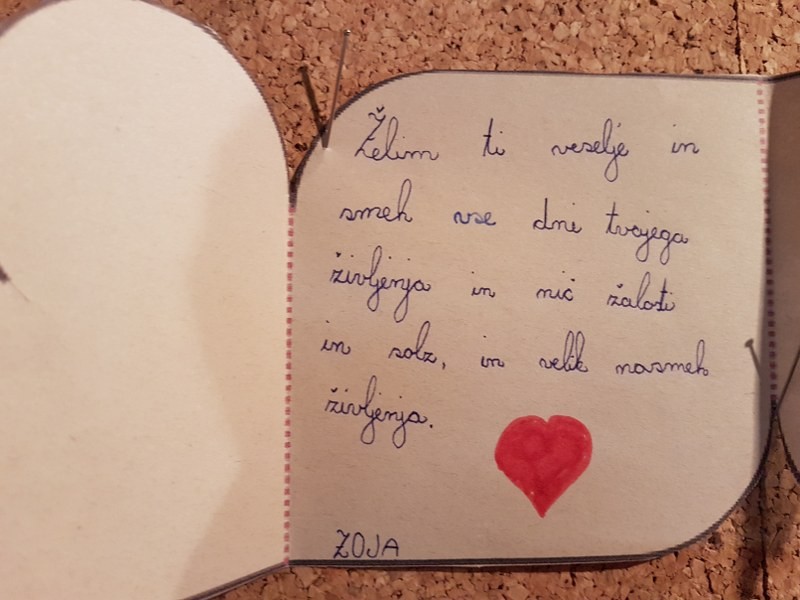 Želim ti veselje in
smeh vse dni tvojega
življenja in nič žalosti
in solz, in velik nasmeh
življenja.
ZOJA